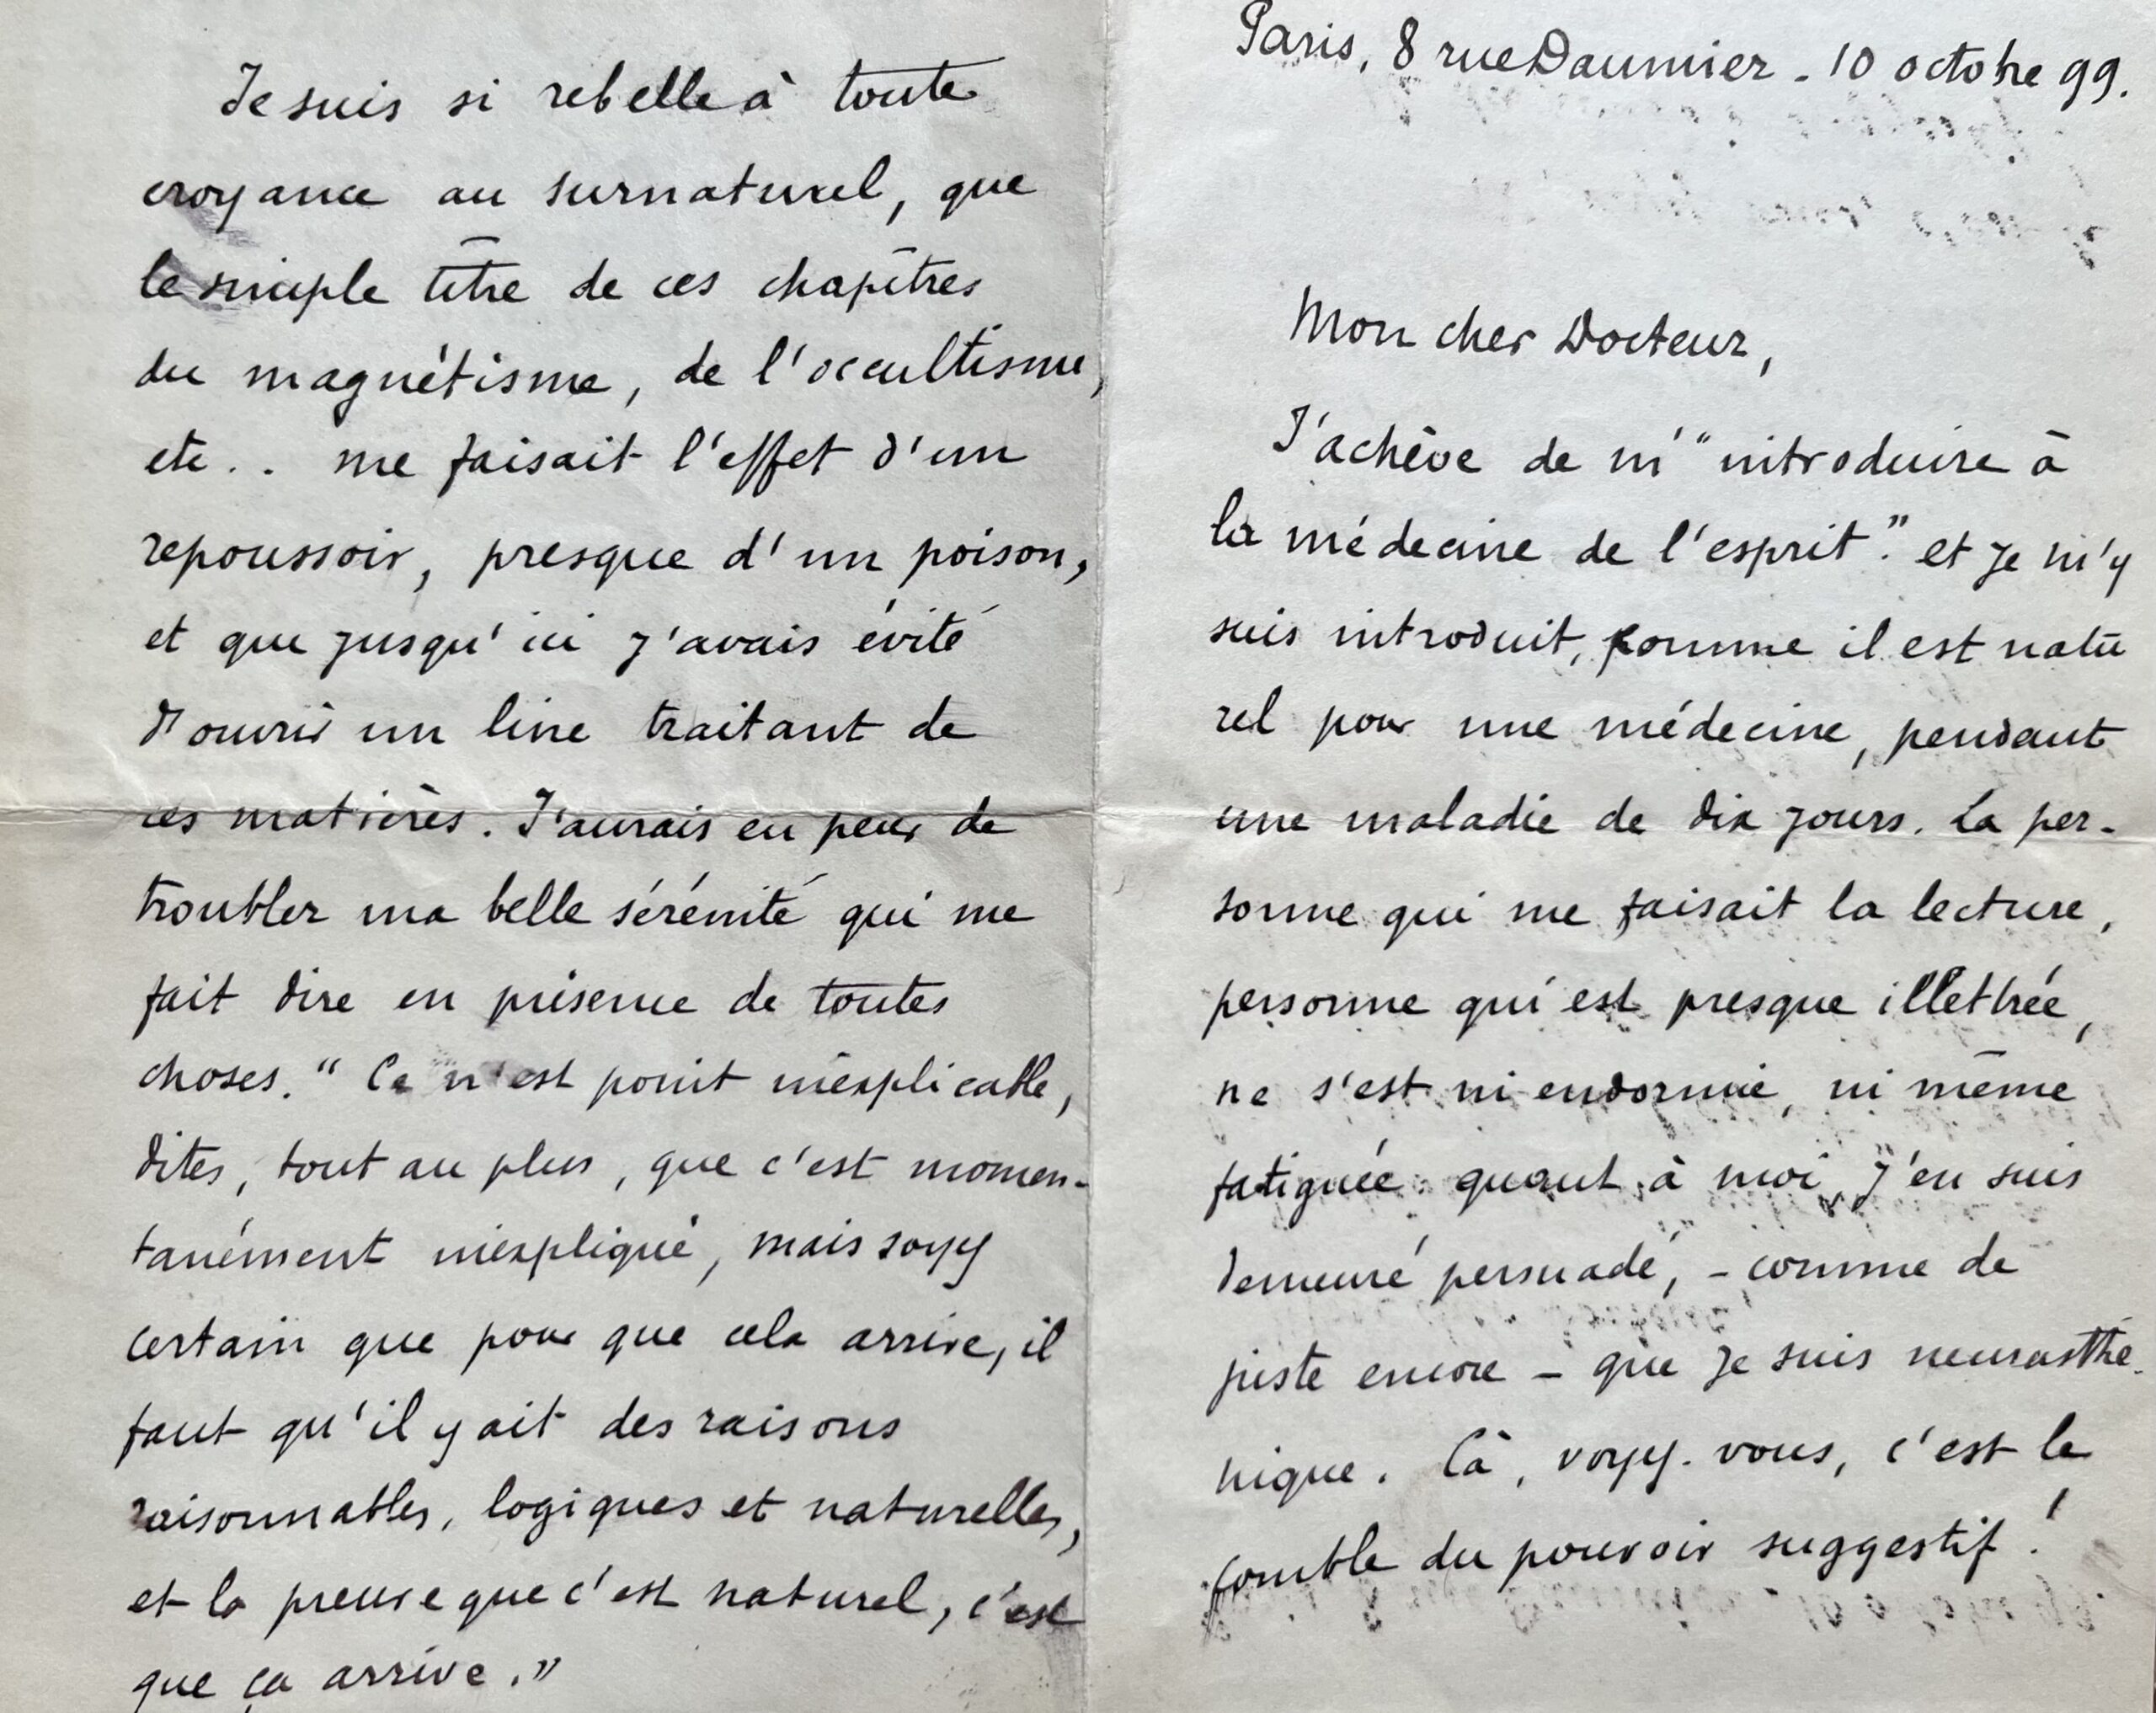 Paris, 8 rue Daumier - 10 octobre 99.
Mon cher Docteur,
J'achève de m' "introduire à
la médecine de l'esprit". et je m'y
suis introduit, comme il est natu
rel pour une médecine, pendant
une maladie de dix jours. La per-
sonne qui me faisait la lecture,
personne qui est presque illettrée,
ne s'est ni endormie, ni même
fatiguée : quant à moi, j'en suis
demeuré persuadé, - comme de
juste encore - que je suis neurasthé-
nique. Ça, voyez-vous, c'est le
comble du pouvoir suggestif !
Je suis si rebelle à toute
croyance au surnaturel, que
le simple titre de ces chapitres
du magnétisme, de l'occultisme,
etc.. me faisait l'effet d'un
repoussoir, presque d'un poison,
et que jusqu'ici j'avais évité
d'ouvrir un livre traitant de
ces matières. J'aurais eu peur de
troubler ma belle sérénité qui me
fait dire en présence de toutes
choses. "Ce n'est point inexplicable,
dites, tout au plus, que c'est momen-
tanément inexpliqué, mais soyez
certain que pour que cela arrive, il
faut qu'il y ait des raisons
raisonnables, logiques et naturelles,
et la preuve que c'est naturel, c'est
que ça arrive."